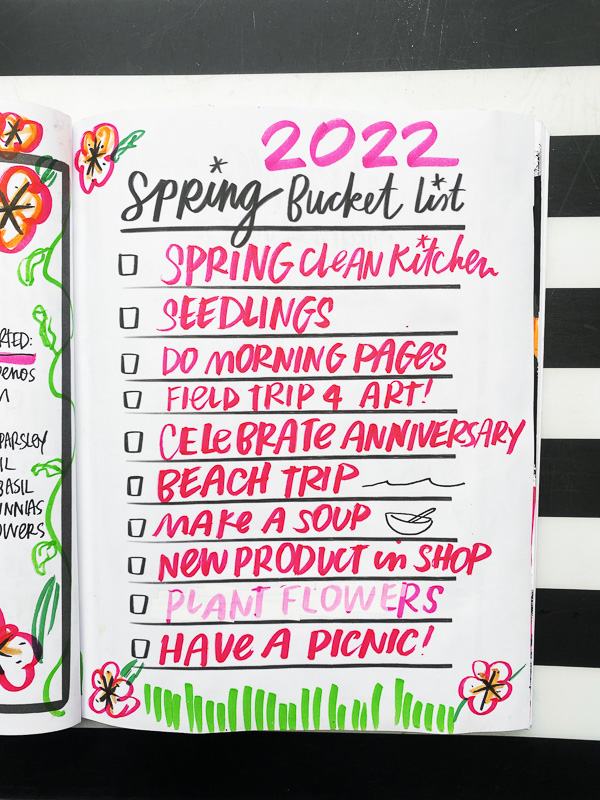 2022
Spring Bucket List
SPRING CLEAN Kitchen
SEEDLINGS
DO MORNING PAGES
FIELD TRIP 4 ART!
CELEBRATE ANNIVERSARY
BEACH TRIP
MAKE A SOUP
NEW PRODUCT in SHOP
PLANT FLOWERS
HAVE A PICNIC!
PARSLEY
BASIL